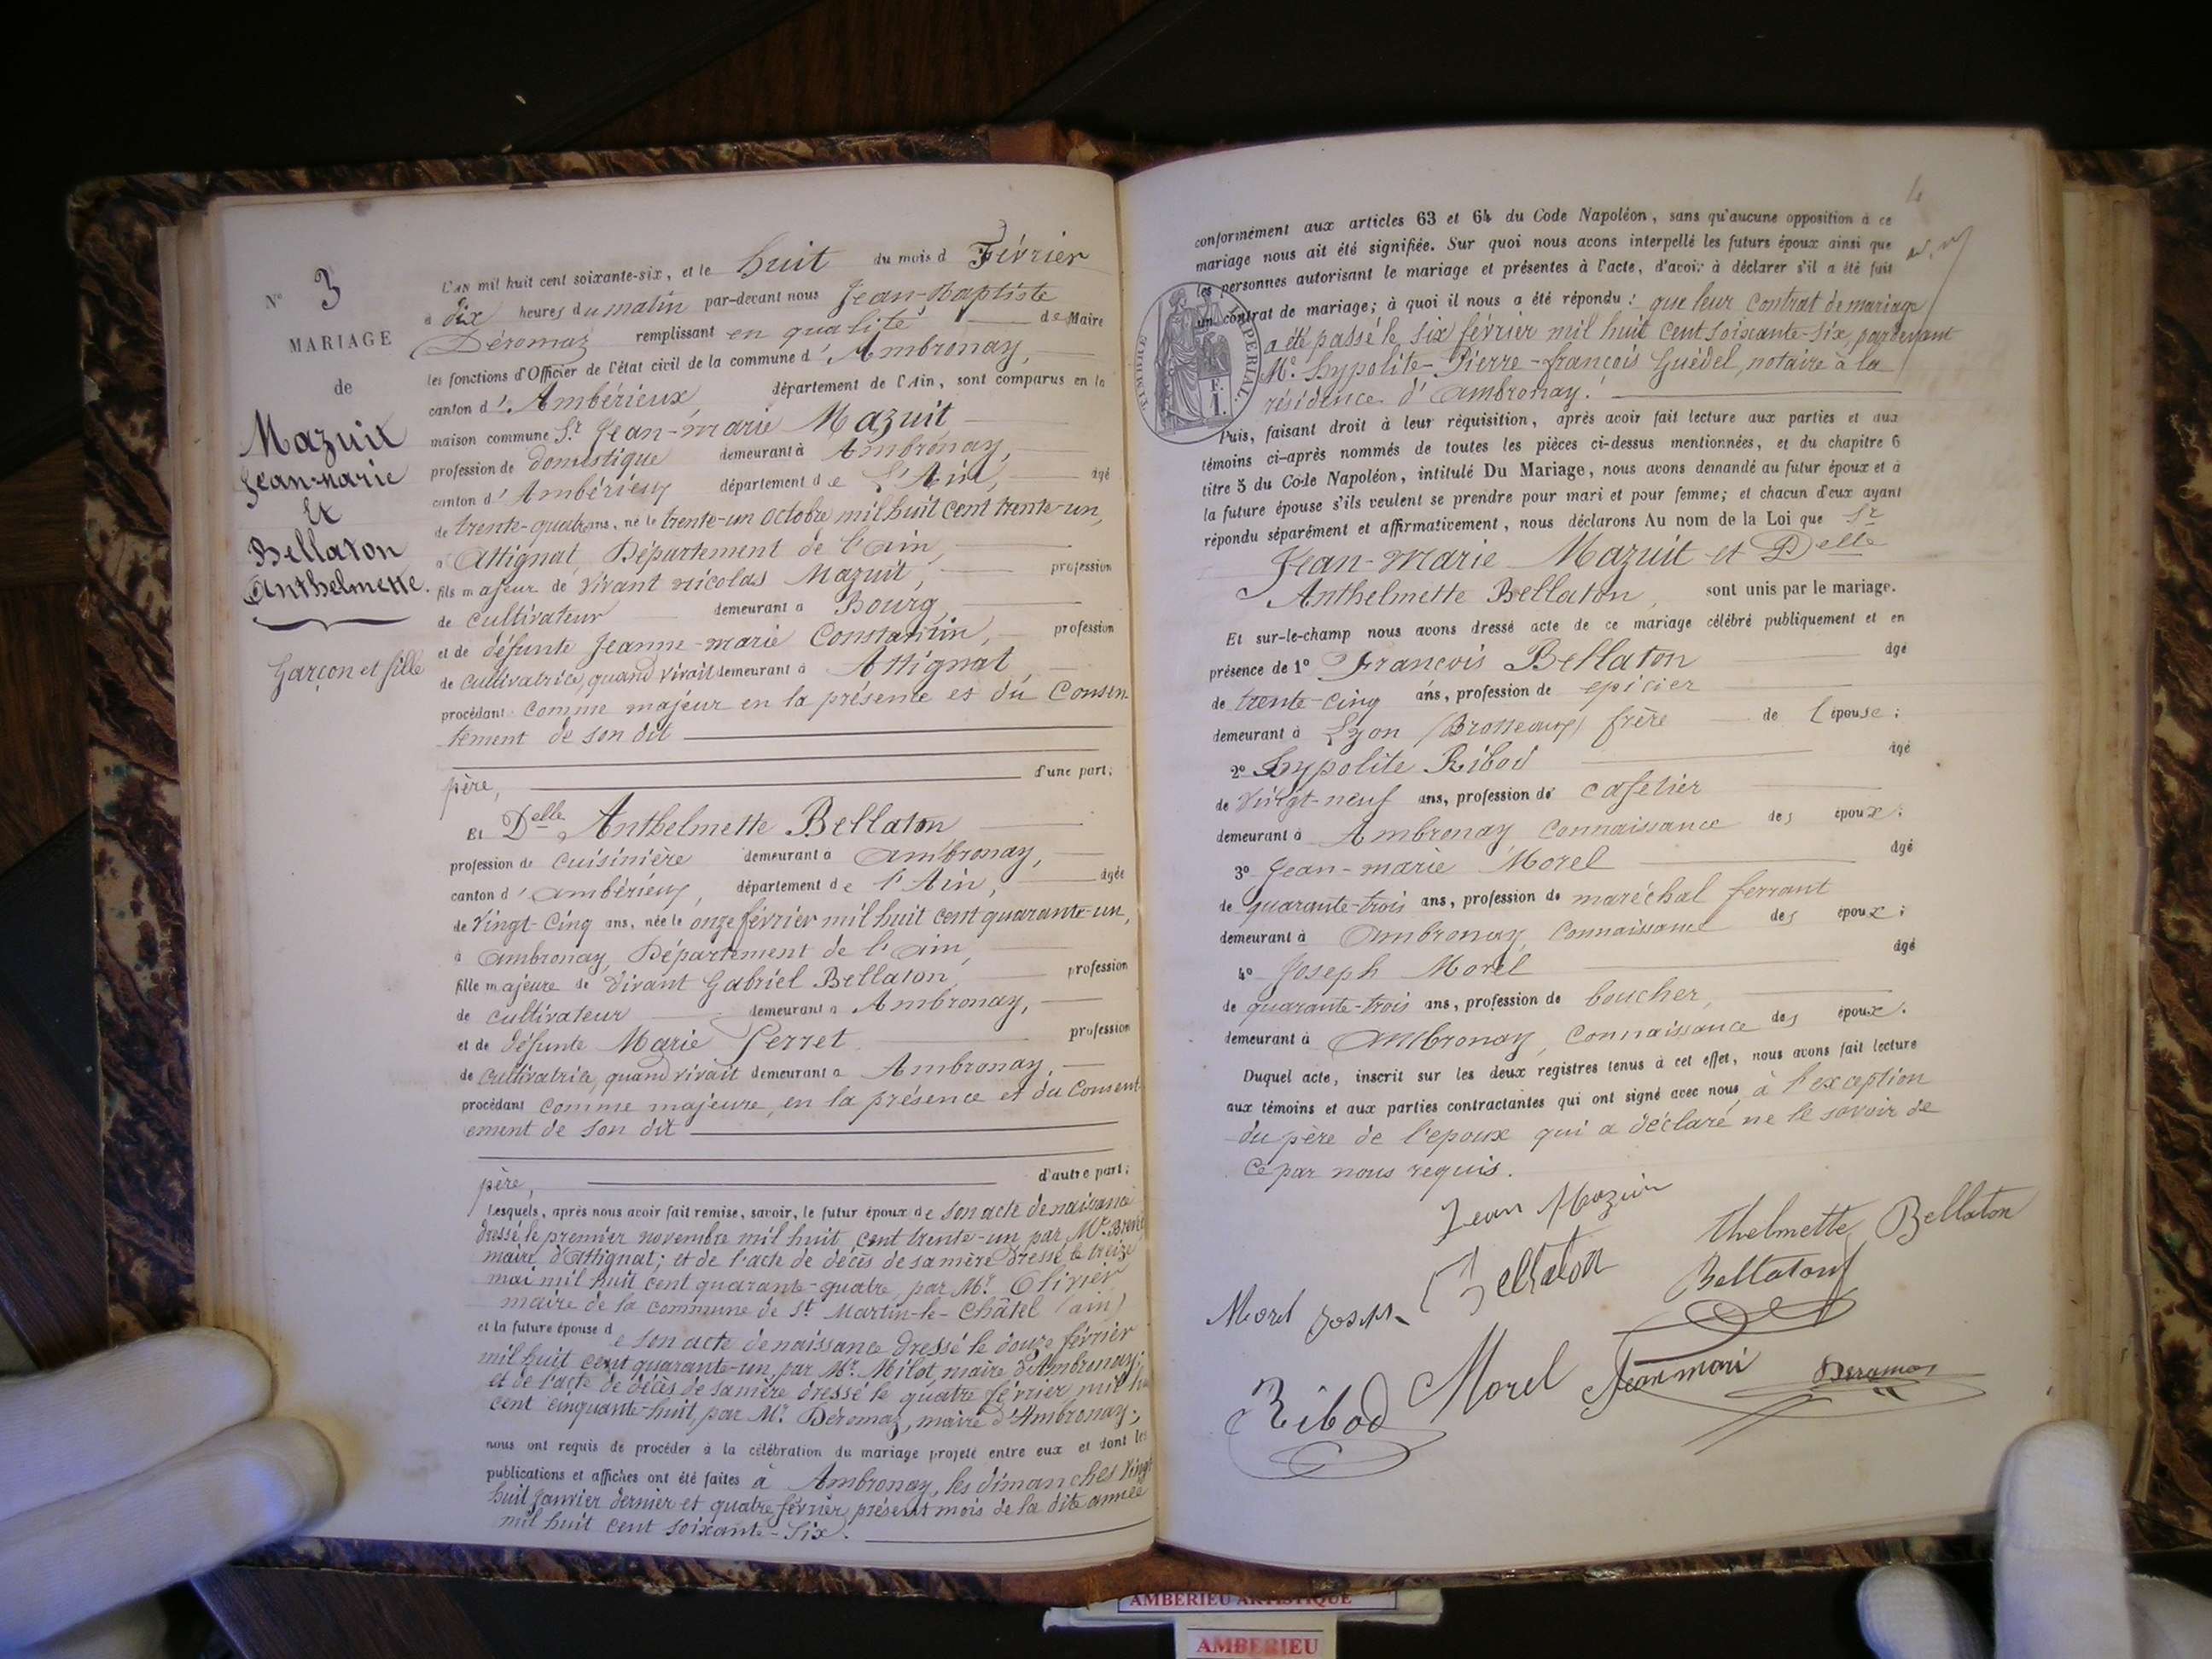 N° 3
MARIAGE
de
Mazuit
Jean-marie
et
Bellaton
Anthelmette.
Garçon et fille
L'AN mil huit cent soixante-six, et le huit du mois d Février
à dix heures du matin par-devant nous Jean-Baptiste
Déromaz remplissant en qualité de Maire
les fonctions d'Officier de l'état civil de la commune d' Ambronay,
canton d' Ambérieux, département de l'Ain, sont comparus en la
maison commune Sr. Jean-marie Mazuit
profession de domestique demeurant à Ambronay,
canton d' Ambérieux département de l'Ain, âgé
de trente-quatre ans, né le trente-un octobre mil huit cent trente-un,
à Attignat, Département de l'ain,
fils majeur de vivant nicolas Mazuit, profession
de cultivateur demeurant à Bourg,
et de défunte Jeanne-marie Constantin, profession
de cultivatrice, quand vivait demeurant à Attignat
procédant comme majeur en la présence et du Consen-
tement de son dit
père, d'une part;
Et Delle Anthelmette Bellaton
profession de cuisinière demeurant à ambronay,
canton d' ambérieux, département de l'Ain, âgée
de vingt-cinq ans, née le onze février mil huit cent quarante-un,
à ambronay, Département de l'ain,
fille majeure de vivant Gabriel Bellaton, profession
de cultivateur demeurant à Ambronay,
et de défunte Marie Perret profession
de cultivatrice, quand vivait demeurant à Ambronay,
procédant comme majeure, en la présence et du Consent-
ement de son dit
père, d'autre part;
Lesquels, après nous avoir fait remise, savoir, le futur époux de son acte de naissance
dressé le premier novembre mil huit cent trente-un par Mr.
maire d'attignat; et de l'acte de décès de sa mère dressé le treize
mai mil huit cent quarante-quatre, par Mr. Olivier
maire de la commune de St Martin-le-Châtel (ain)
et la future épouse de son acte de naissance dressé le douze février
mil huit cent quarante-un, par Mr. Milot, maire d'Ambronay;
et de l'acte de décès de sa mère dressé le quatre février mil h
cent cinquante-huit, par Mr. Déromaz, maire d'Ambronay;
nous ont requis de procéder à la célébration du mariage projeté entre eux et dont les
publications et affiches ont été faites à Ambronay, les dimanches vingt
huit janvier dernier et quatre février présent mois de la dite année
mil huit cent soixante-six.
4
conformément aux articles 63 et 64 du Code Napoléon, sans qu'aucune opposition à ce
mariage nous ait été signifiée. Sur quoi nous avons interpellé les futurs époux ainsi que
les personnes autorisant le mariage et présentes à l'acte, d'avoir à déclarer s'il a été fait
un contrat de mariage; à quoi il nous a été répondu: que leur Contrat de mariage
a été passé le six février mil huit cent soixante-six, pardevant
Me. hypolite-Pierre-françois Guédel, notaire à la
résidence d'ambronay.
TIMBRE IMPERIAL.
F.
I.
Puis, faisant droit à leur réquisition, après avoir fait lecture aux parties et aux
témoins ci-après nommés de toutes les pièces ci-dessus mentionnées, et du chapitre 6
titre 5 du Code Napoléon, intitulé Du Mariage, nous avons demandé au futur époux et à
la future épouse s'ils veulent se prendre pour mari et pour femme; et chacun d'eux ayant
répondu séparément et affirmativement, nous déclarons Au nom de la Loi que Sr
Jean-Marie Mazuit et Delle
Anthelmette Bellaton, sont unis par le mariage.
Et sur-le-champ nous avons dressé acte de ce mariage célébré publiquement et en
présence de 1° François Bellaton âgé
de trente-cinq ans, profession de epicier
demeurant à Lyon (Brotteaux) frère de l'épouse;
2° hypolite Ribod âgé
de vingt-neuf ans, profession de cafetier
demeurant à Ambronay connaissance des époux;
3° Jean-marie Morel âgé
de quarante-trois ans, profession de maréchal ferrant
demeurant à ambronay, connaissance des époux;
4° Joseph Morel âgé
de quarante-trois ans, profession de boucher,
demeurant à ambronay, connaissance des époux.
Duquel acte, inscrit sur les deux registres tenus à cet effet, nous avons fait lecture
aux témoins et aux parties contractantes qui ont signé avec nous, à l'exception
du père de l'epoux qui a déclaré ne le savoir de
ce par nous requis.
Jean Mazuit
Thelmette Bellaton
Bellaton
Bellaton
Morel Joseph
Ribod
Morel Jeanmari
Deromas
AMBERIEU ARTISTIQUE
AMBERIEU